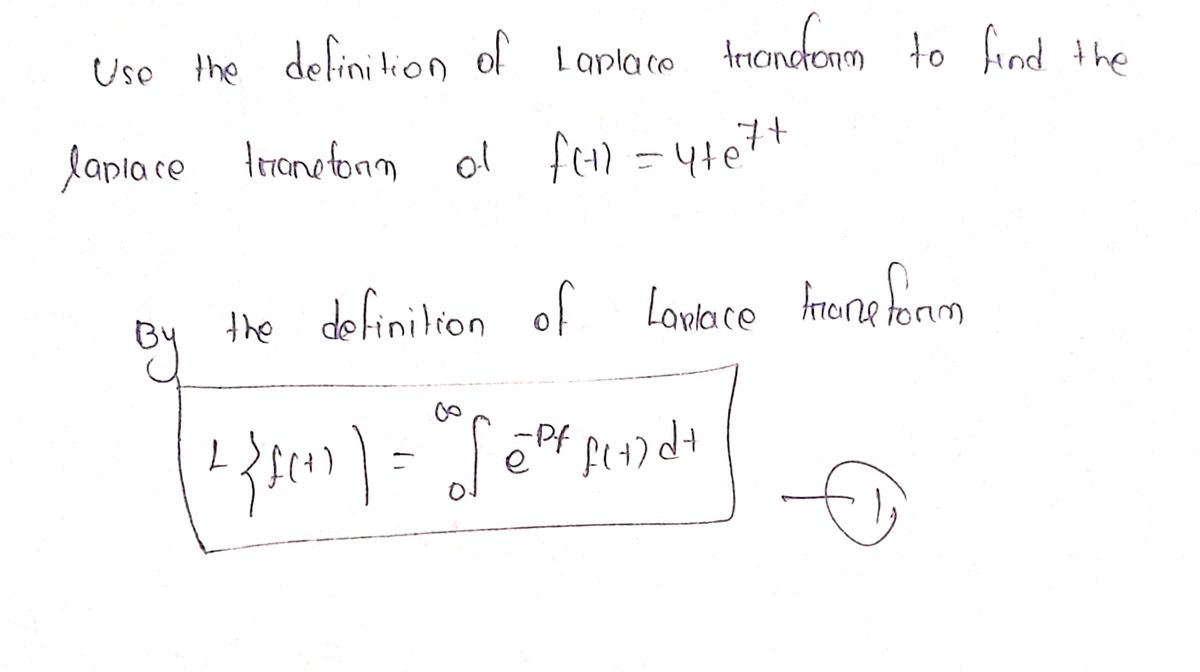 Use the definition of Laplace transform to find the
laplace transform of f(t) = 4te^7t
By the definition of Laplace transform
L{f(t)} = ∞∫0 e^-pt f(t) dt —(1)